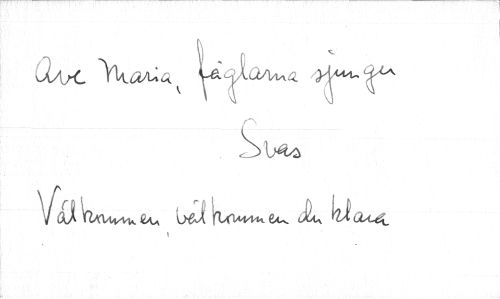 Ave Maria, fåglarna sjunger
Svas
Välkommen, välkommen du klara